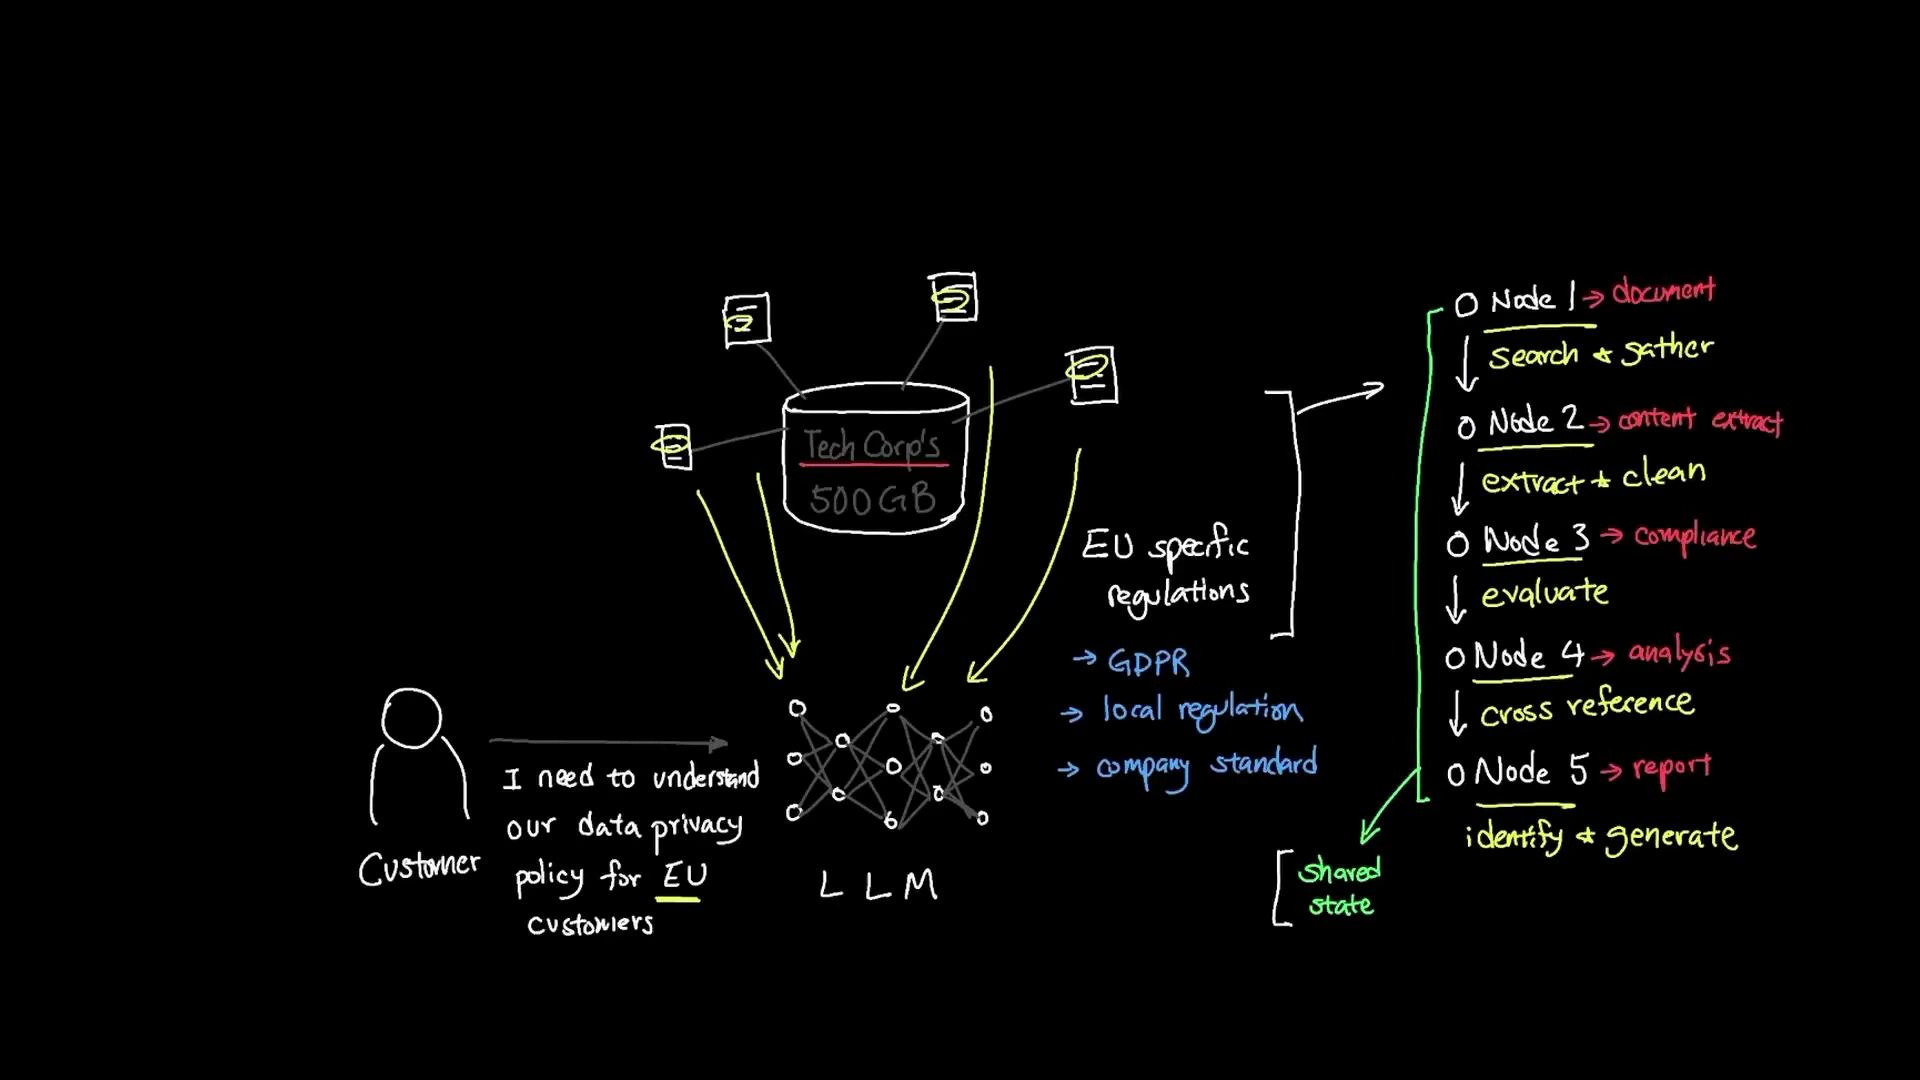 Tech Corp's
500GB
EU specific
regulations
→ GDPR
→ local regulation
→ company standard
Customer
I need to understand
our data privacy
policy for EU
customers
LLM
Node 1 → document
search & gather
Node 2 → content extract
extract & clean
Node 3 → compliance
evaluate
Node 4 → analysis
cross reference
Node 5 → report
identify & generate
shared
state